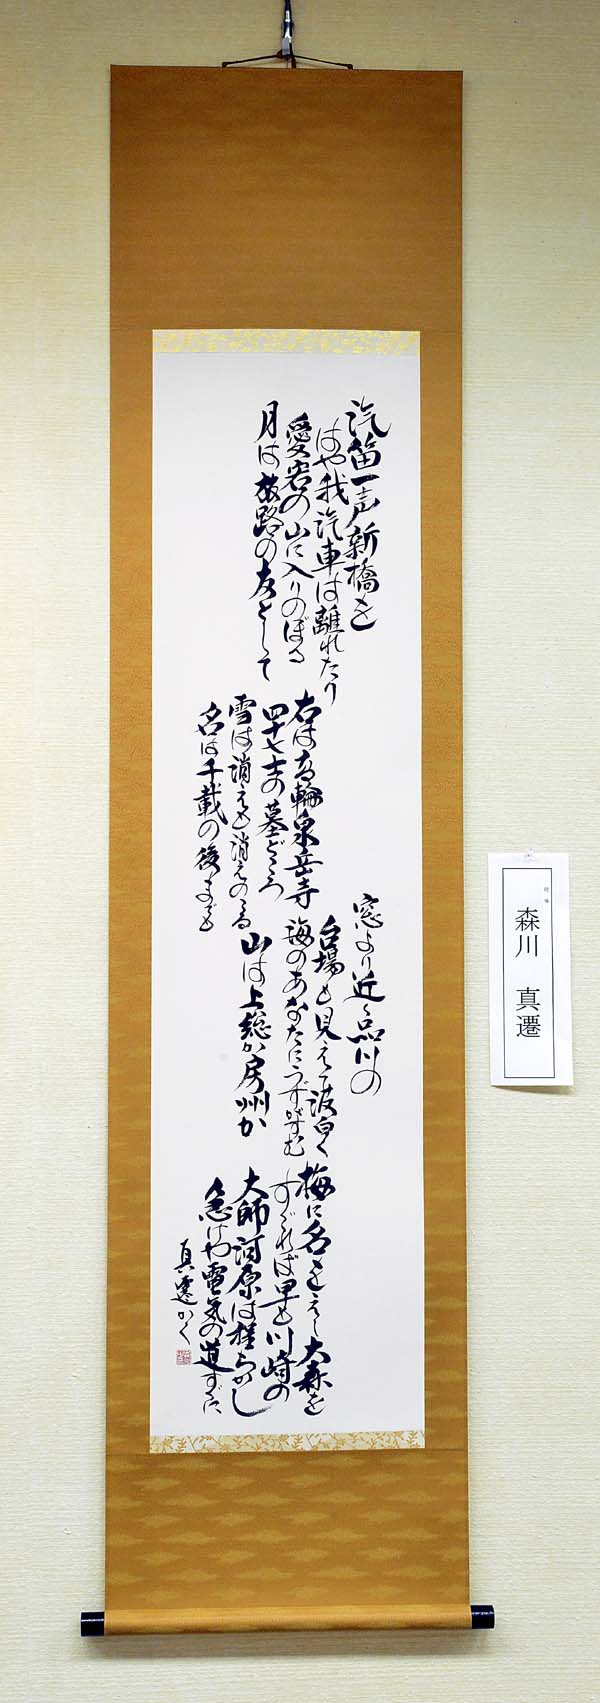 汽笛一声新橋を
はや我汽車は離れたり
愛宕の山に入りのぼる
月は旅路の友として
右は高輪泉岳寺
四十七士の墓どころ
雪は消えても消えのこる
名は千載の後までも
窓より近く品川の
台場も見えて波白く
海のあなたにうすがすむ
山は上総か房州か
梅に名をえし大森を
すぐれば早も川崎の
大師河原は程ちかし
急げや電気の道すぐに
真遷かく
森川 真遷